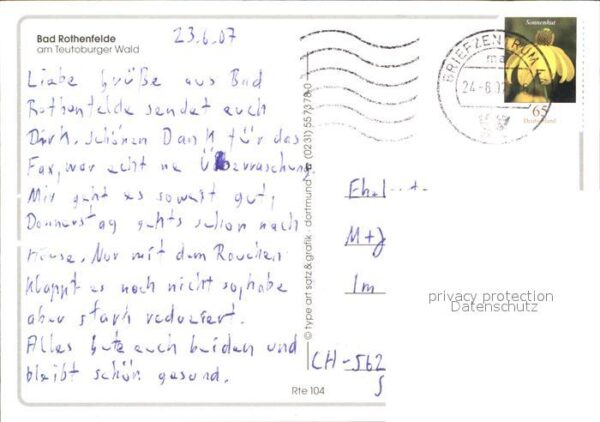 Bad Rothenfelde
am Teutoburger Wald
23.6.07
Liebe Grüße aus Bad
Rothenfelde sendet euch
Dirk. Schönen Dank für das
Fax, war echt ne Überraschung.
Mir geht es soweit gut,
Donnerstag gehts schon nach
Hause. Nur mit dem Rauchen
klappt es noch nicht so, habe
aber stark reduziert.
Alles gute euch beiden und
bleibt schön gesund.
Rte 104
© type art satz & grafik · dortmund (0231) 557378-0
Sonnenhut
65
Deutschland
BRIEFZENTRUM
24-6.07
M+J
Im
CH-562
privacy protection
Datenschutz